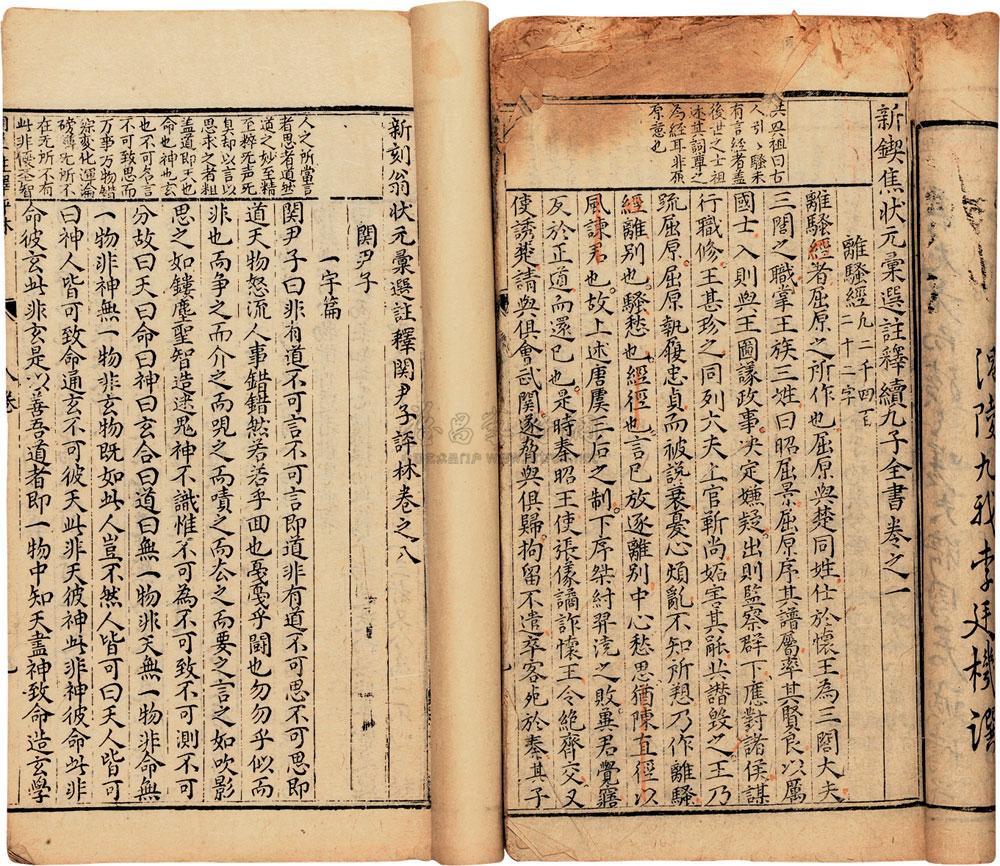 湄陵九我李廷機撰
新鍥焦状元彙選註釋續九子全書卷之一
離騷經九二千四百二十二字
共興祖曰古
人引丶騷未
有言經者盖
後世之士祖
述其詞尊之
為經耳非㱕
原意也
離騷經者屈原之所作也屈原與楚同姓仕於懷王為三閭大夫
三閭之職掌王族三姓曰昭屈景屈原序其譜屬率其賢良以厲
國士入則與王圖議政事决定嫌疑出則監察群下應對諸侯謀
行職修王甚珍之同列大夫上官靳尚妬害其能共譖毁之王乃
踈屈原屈原執履忠貞而被䛕衺憂心煩亂不知所愬乃作離騷
經離别也騷愁也經徑也言已放逐離别中心愁思猶陳直徑以
風諫君也故上述唐虞三后之制下序桀紂羿澆之敗冀君覺寤
反於正道而還已也是時秦昭王使張儀譎詐懷王令絶齊交又
使誘楚請與俱會武關遂脅與俱歸拘留不遣卒客死於秦其子
新刻翁状元彙選註釋関尹子評林卷之八
関尹子
一字篇
人之所當言
者思者道然
道之妙至精
至粹无声无
臭却以言以
思求之者粗
盖道即天也
命也神也玄
也不可名言
不可致思而
万事万物錯
綜變化運淪
磅礴无所不
在无所不有
此非極圣智
関尹子曰非有道不可言不可言即道非有道不可思不可思即
道天物怒流人事錯錯然若若乎囬也戞戞乎鬪也勿勿乎似而
非也而争之而介之而哯之而嘖之而去之而要之言之如吹影
思之如鏤塵聖智造迷鬼神不識惟不可為不可致不可測不可
分故曰天曰命曰神曰玄合曰道曰無一物非天無一物非命無
一物非神無一物非玄物既如此人豈不然人皆可曰天人皆可
曰神人皆可致命通玄不可彼天此非天彼神此非神彼命此非
命彼玄此非玄是以善吾道者即一物中知天盡神致命造玄學
八卷